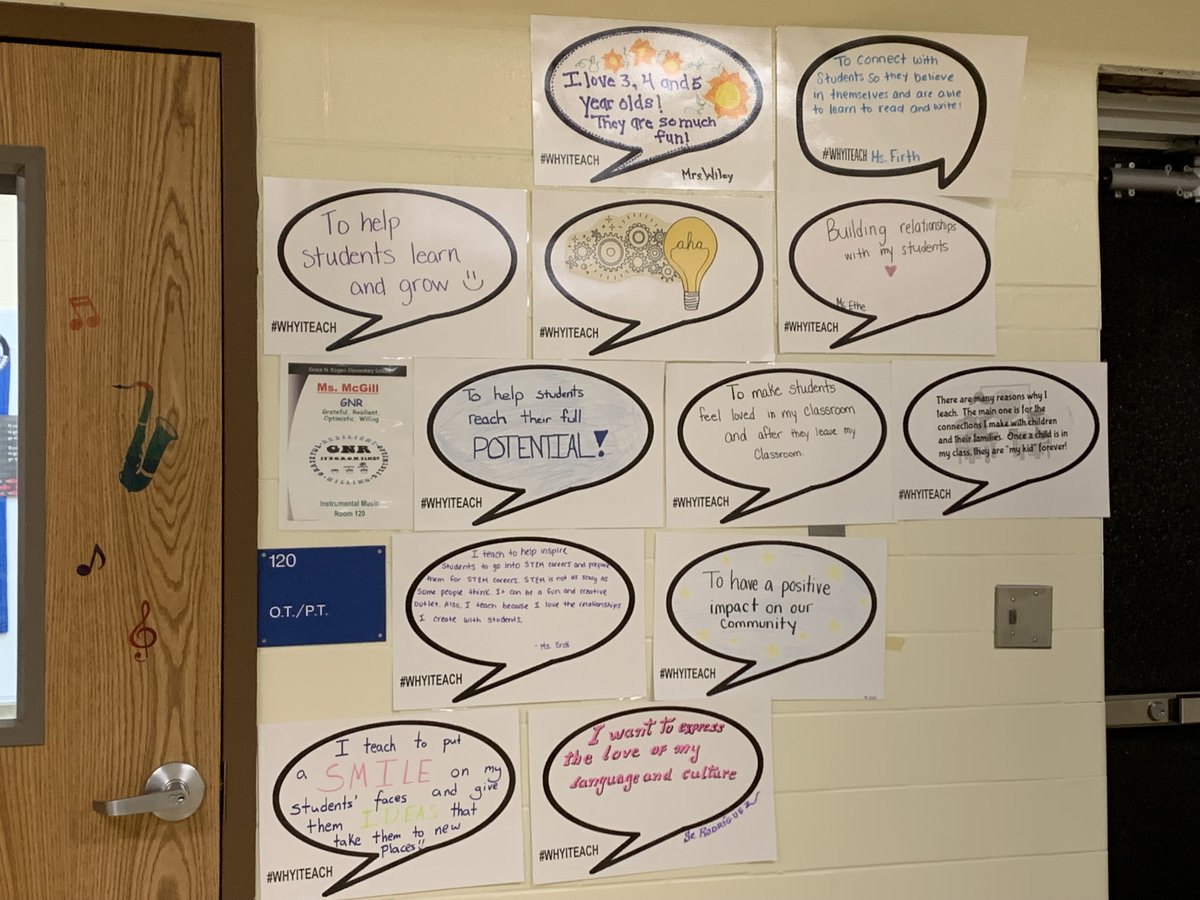 I love 3, 4 and 5
year olds!
They are so much
fun!
#WHYITEACH
Mrs. Wiley
To connect with
students so they believe
in themselves and are able
to learn to read and write!
#WHYITEACH Ms. Firth
To help
students learn
and grow
#WHYITEACH
aha
#WHYITEACH
Building relationships
with my students
Ms. Ethe
#WHYITEACH
Grace N. Rogers Elementary School
Ms. McGill
GNR
Grateful, Resilient,
Optimistic, Willing
GNR
Instrumental Music
Room 120
To help students
reach their full
POTENTIAL!
#WHYITEACH
To make students
feel loved in my classroom
and after they leave my
classroom.
#WHYITEACH
There are many reasons why I
teach. The main one is for the
connections I make with children
and their families. Once a child is in
my class, they are "my kid" forever!
#WHYITEACH
120
O.T./P.T.
I teach to help inspire
students to go into STEM careers and prepare
them for STEM careers. STEM is not as scary as
some people think. It can be a fun and creative
outlet. Also, I teach because I love the relationships
I create with students.
- Ms.
#WHYITEACH
To have a positive
impact on our
community
#WHYITEACH
I teach to put
a SMILE on my
students' faces and give
them IDEAS that
take them to new
places!!
#WHYITEACH
I want to express
the love of my
language and culture
Sr. RODRÍGUEZ
#WHYITEACH